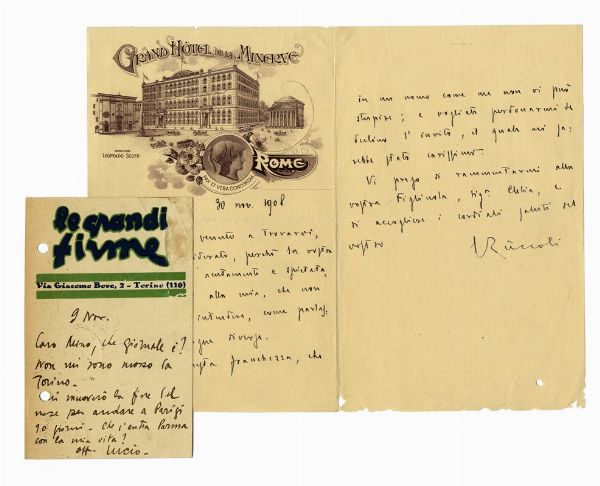 GRAND HÔTEL DE LA MINERVE
PROPRIETAIRE
LEOPOLDO SCOTTI
PAX ET VERA CONCORDIA
ROME
30 nov. 1908
venuto a trovarvi,
perchè la vostra
acutamente e spietata,
alla mia, che non
intendere, come parlas:
gue diverse.
franchezza, che
in un uomo come me non vi può
stupire; e vogliate perdonarmi se
declino l'invito, il quale mi sa:
rebbe stato carissimo.
Vi prego di rammentarmi alla
vostra figliuola, sig.a Clelia, e
di accogliere i cordiali saluti del
vostro
le grandi
firme
Via Giacomo Bove, 2 - Torino (110)
9 Nov.
Caro, che giornale è?
Non mi sono mosso da
Torino.
mi muoverò la fine del
mese per andare a Parigi
10 giorni. Che c'entra Parma
con la mia vita?
aff. Lucio.